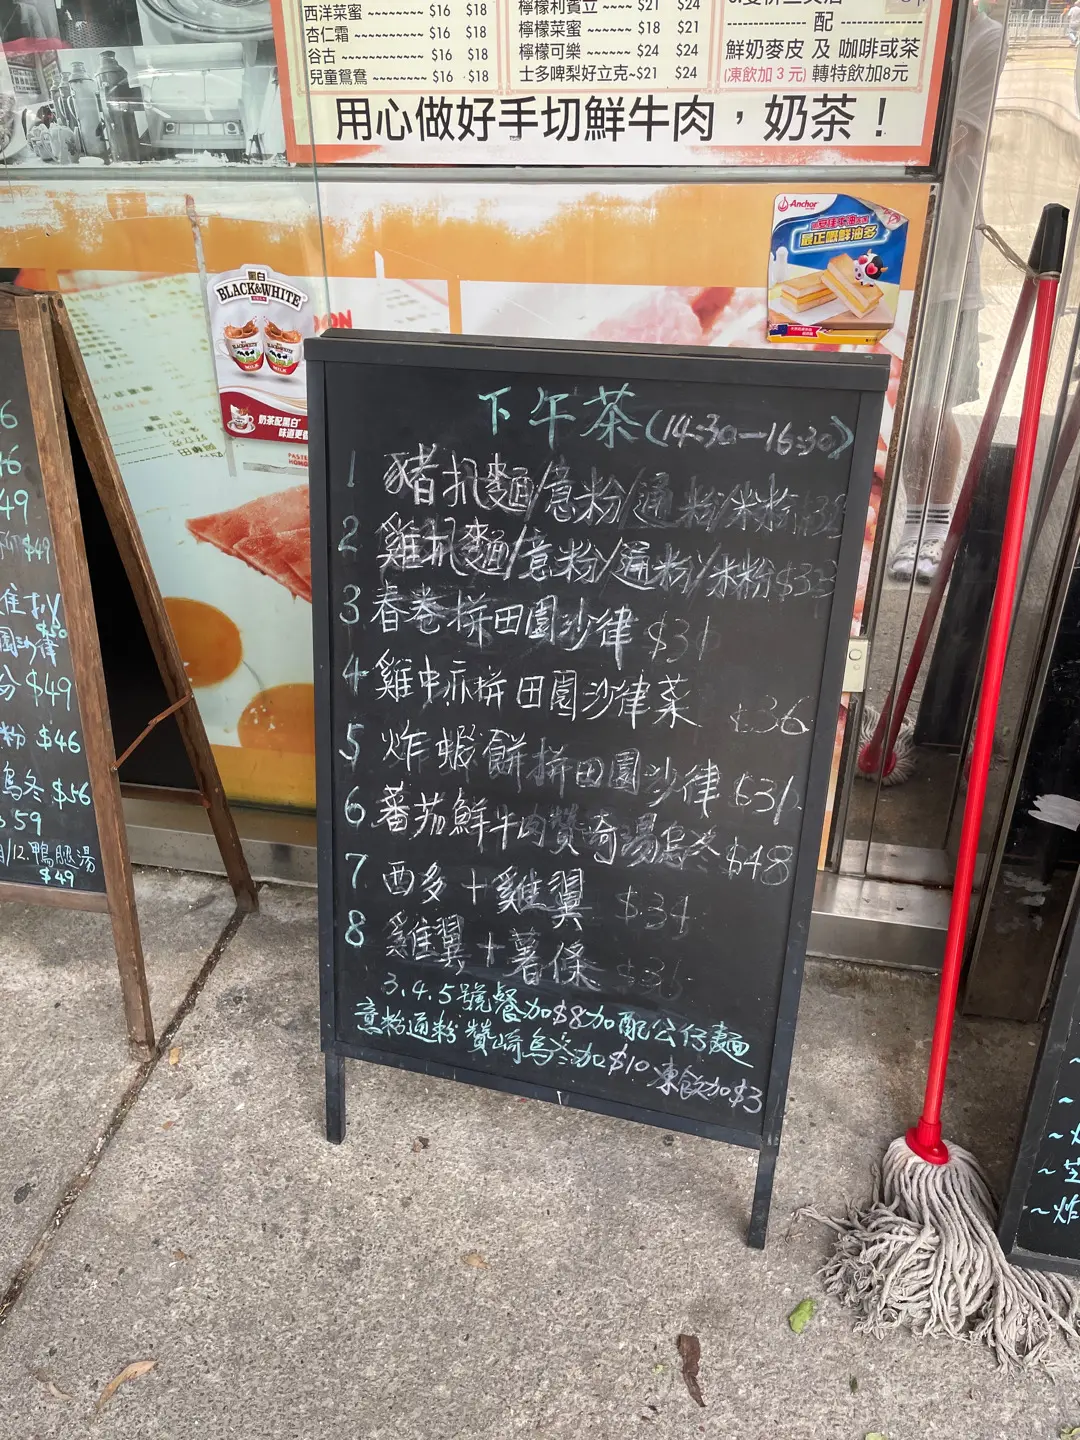 西洋菜蜜 ~~~~~~~~ $16 $18
杏仁霜 ~~~~~~~~~~ $16 $18
谷古 ~~~~~~~~~~~~ $16 $18
兒童鴛鴦 ~~~~~~~~ $16 $18
檸檬利賓立 ~~~~ $21 $24
檸檬菜蜜 ~~~~~~ $18 $21
檸檬可樂 ~~~~~~ $24 $24
士多啤梨好立克~$21 $24
配
鮮奶麥皮 及 咖啡或茶
(凍飲加 3 元) 轉特飲加8元
用心做好手切鮮牛肉，奶茶！
Anchor
最正嘅鮮油多
黑白
BLACK&WHITE
奶茶配黑白
下午茶(14:30—16:30)
1 豬扒麵/意粉/通粉/米粉
2 雞扒麵/意粉/通粉/米粉 $33
3 春卷拼田園沙律 $31
4 雞中亦拼田園沙律菜 $36
5 炸蝦餅拼田園沙律 $31
6 蕃茄鮮牛肉贊奇湯烏冬 $48
7 西多+雞翼 $34
8 雞翼+薯條
3.4.5號餐加$8加配公仔麵
意粉通粉 贊崎烏冬加$10 凍飲加$3
$49
$49
粉 $46
烏冬 $56
59
12.鴨腿湯
$49